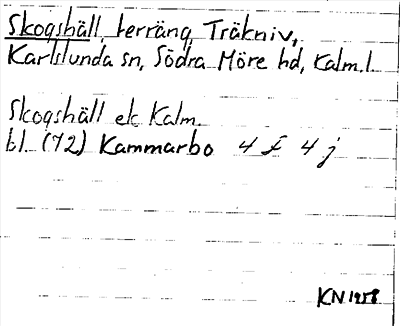 Skogshäll, terräng Träkniv,
Karlslunda sn, Södra Möre hd, Kalm.l.
Skogshäll ek Kalm.
bl. (72) Kammarbo 4 f 4 j
KN 1958